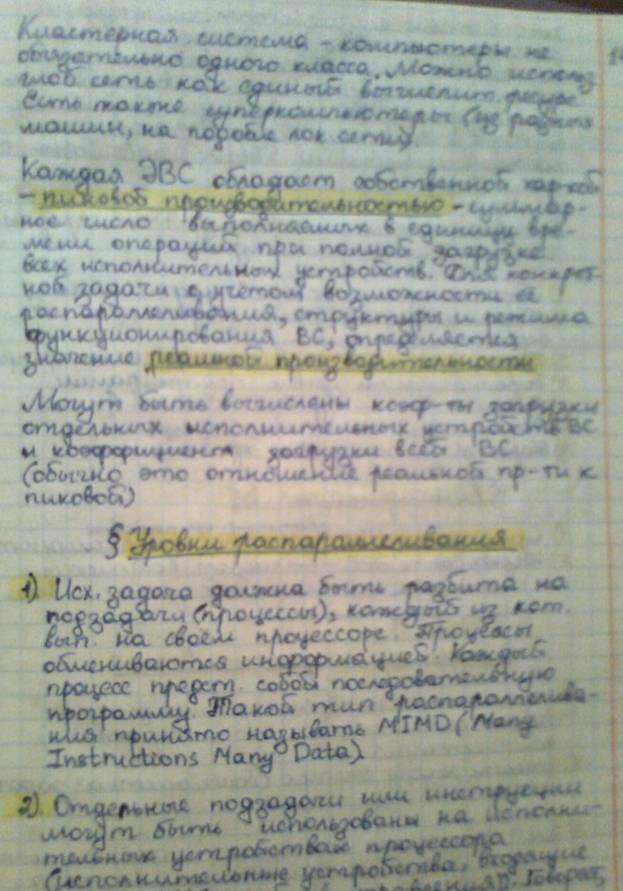 Кластерная система - компьютеры не
обязательно одного класса. Можно использ
глоб сеть как единый вычислит. ресурс
Есть также суперкомпьютеры (из разных
машин, на подобие лок сети).
Каждая ЭВС обладает собственной хар-кой
- пиковой производительностью - суммар-
ное число выполняемых в единицу вре-
мени операций при полной загрузке
всех исполнительных устройств. Для конкрет-
ной задачи с учётом возможности её
распараллеливания, структуры и режима
функционирования ВС, определяется
значение реальной производительности
Могут быть вычислены коэф-ты загрузки
отдельных исполнительных устройств ВС
и коэффициент загрузки всей ВС
(обычно это отношение реальной пр-ти к
пиковой)
§ Уровни распараллеливания
1) Исх. задача должна быть разбита на
подзадачи (процессы), каждый из кот.
вып. на своём процессоре. Процессы
обмениваются информацией. Каждый
процесс предст. собой последовательную
программу. Такой тип распараллелива-
ния принято называть MIMD (Many
Instructions Many Data).
2) Отдельные подзадачи или инструкции
могут быть использованы на исполни-
тельных устройствах процессора
(исполнительные устройства, входящие
говорят,